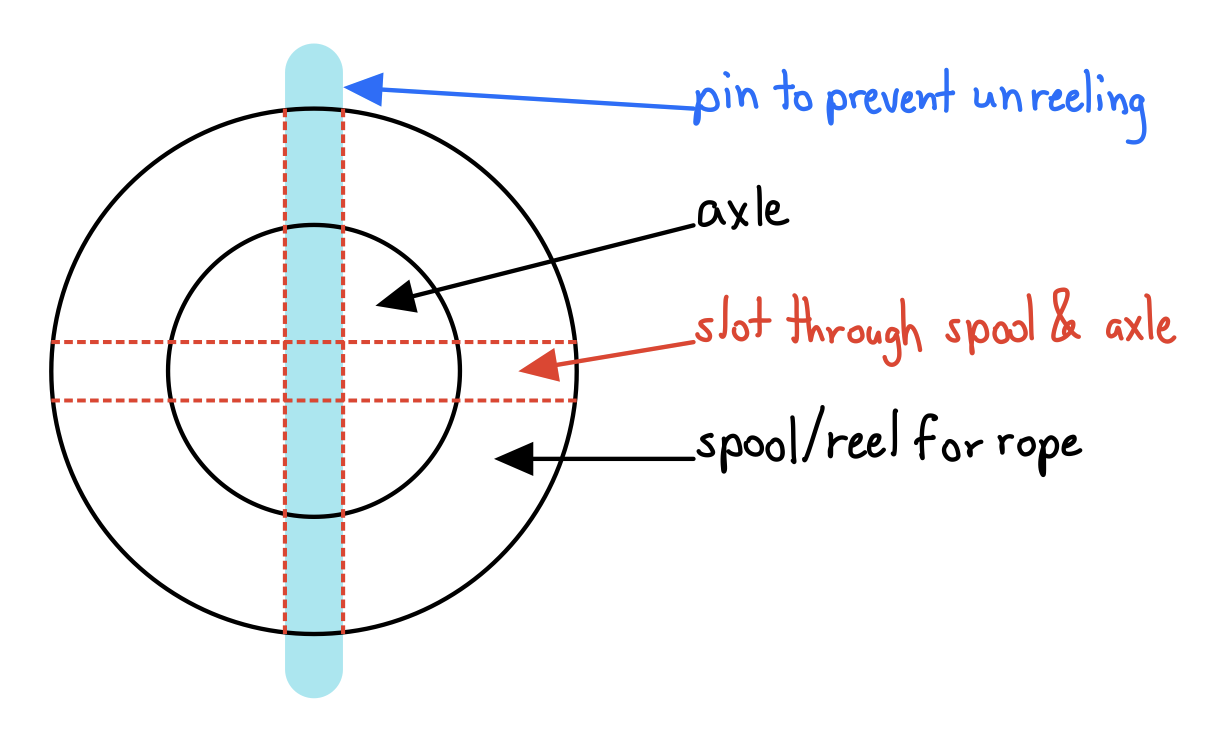 pin to prevent unreeling
axle
slot through spool & axle
spool/reel for rope